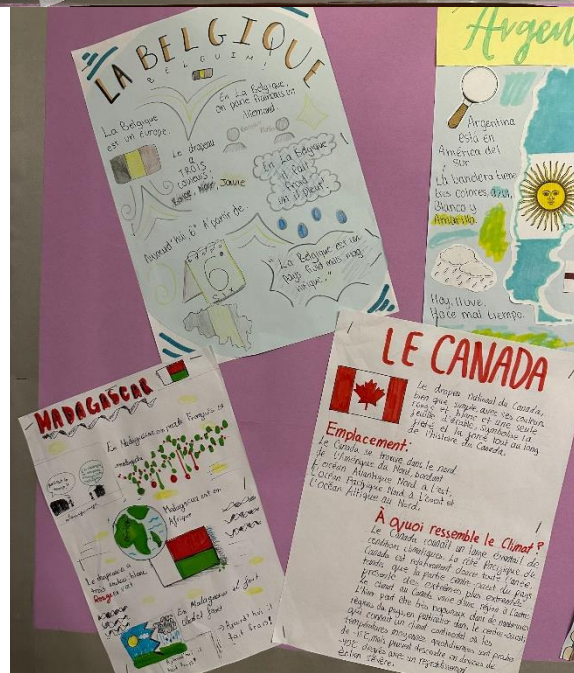 LA BELGIQUE
BELGUIM!
La Belgique
est un europe.
En La Belgique,
on parle français un
allemand.
Le drapeau
a
TROIS
couleurs:
Rouge, Noir, Jaune
En La Belgique
il fait
froid
un il pleut.
Aujourd'hui, 6°
6
"La Belgique est un
pays froid mais mag
nifique."
Argen
Argentina
está en
América del
sur
La bandera tiene
tres colores, azul,
Blanco y
Amarilla.
Hoy, lluve.
Hace mal tiempo.
MADAGASCAR
En Madagascar on parle Français et
Madagascar est en
Afrique
Le drapeau a
trois
Rouge
En Madagascar il fait
Aujourd'hui il
fait froid!
LE CANADA
Le drapeau national du Canada,
bien que simple avec ses couleurs
rouge et blanc et une seule
feuille d'érable, symbolise la
fierté et la force tout au long
de l'histoire du Canada.
Emplacement:
Le Canada se trouve dans le nord
de l'Amérique du Nord, bordant
l'océan Atlantique Nord à l'est,
Océan Pacifique Nord à l'ouest et
l'océan au Nord.
À quoi ressemble le Climat?
Le Canada connaît un large éventail de
conditions climatiques. La côte Pacifique du
Canada est relativement douce toute l'année
tandis que la partie centre-ouest du pays
présente des extrêmes plus extrêmes.
Le climat au Canada varie d'une région à l'autre.
L'hiver peut être très rigoureux dans de nombreuses
régions du pays, en particulier dans le centre-ouest
qui connaît un climat continental où les
températures moyennes quotidiennes sont proches
de -15°C, mais peuvent descendre en dessous de
-40°C avec un refroidissement
éolien sévère.